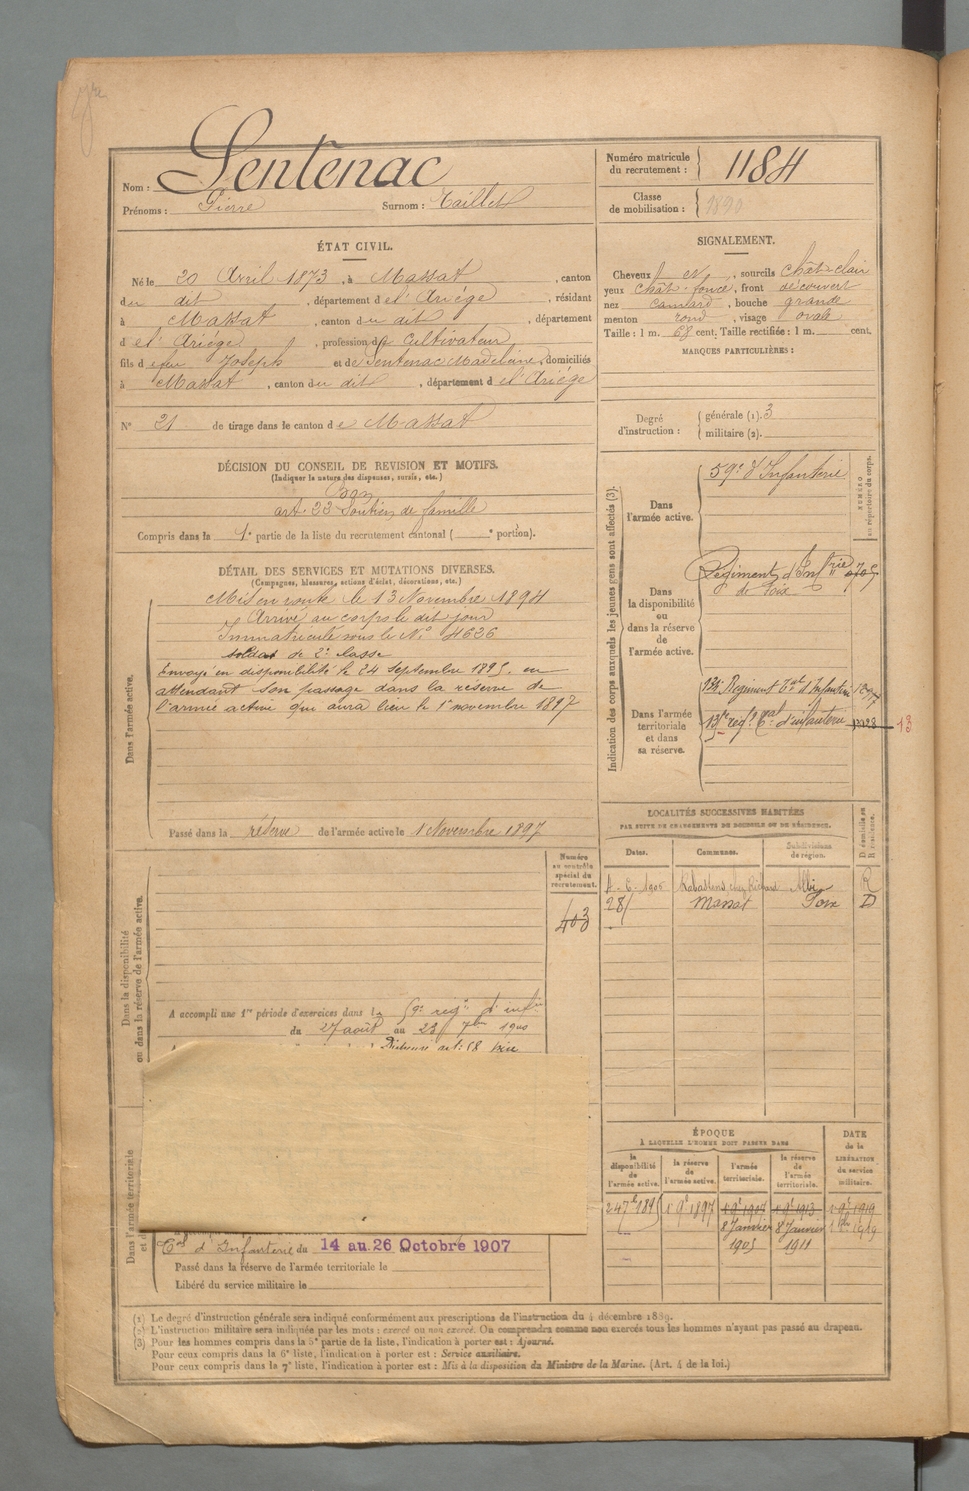 Nom : Sentenac
Prénoms : Pierre Surnom : Taillet
Numéro matricule du recrutement : 1184
Classe de mobilisation : 1890
ÉTAT CIVIL.
Né le 20 Avril 1873, à Massat, canton
du dit, département de l'Ariége, résidant
à Massat, canton du dit, département
d e l'Ariége, profession de Cultivateur
fils de feu Joseph et de Sentenac Madeleine, domiciliés
à Massat, canton du dit, département de l'Ariége
N° 21 de tirage dans le canton de Massat
SIGNALEMENT.
Cheveux et, sourcils chât-clair
yeux chât. foncé, front découvert
nez camard, bouche grande
menton rond, visage ovale
Taille : 1 m. 68 cent. Taille rectifiée : 1 m. cent.
MARQUES PARTICULIÈRES :
Degré d'instruction : générale (1). 3
militaire (2).
DÉCISION DU CONSEIL DE REVISION ET MOTIFS.
(Indiquer la nature des dispenses, sursis, etc.)
Bon
art. 23 Soutien de famille
Compris dans la 1e partie de la liste du recrutement cantonal ( e portion).
DÉTAIL DES SERVICES ET MUTATIONS DIVERSES.
(Campagnes, blessures, actions d'éclat, décorations, etc.)
Dans l'armée active.
Mis en route le 13 Novembre 1894
Arrivé au corps le dit jour
Immatriculé sous le N° 4636
soldat de 2e classe
Envoyé en disponibilité le 24 septembre 1895. en
attendant son passage dans la réserve de
l'armée active qui aura lieu le 1er novembre 1897
Passé dans la réserve de l'armée active le 1 Novembre 1897
Indication des corps auxquels les jeunes gens sont affectés (3).
NUMÉRO au répertoire du corps.
Dans l'armée active.
59e d'Infanterie
Dans la disponibilité ou dans la réserve de l'armée active.
Régiment d'Infrie
de Foix
Dans l'armée territoriale et dans sa réserve.
Régiment Tal d'Infanterie
regt Tal d'infanterie
13
LOCALITÉS SUCCESSIVES HABITÉES
PAR SUITE DE CHANGEMENTS DE DOMICILE OU DE RÉSIDENCE.
Dates. Communes. Subdivisions de région. D domicile ou R résidence.
Rabastens chez Albi R
Massat Foix D
Dans la disponibilité ou dans la réserve de l'armée active.
Numéro au contrôle spécial du recrutement.
403
A accompli une 1re période d'exercices dans le 59e regt d'infie
du 27 août au 23 7bre 1900
Dans l'armée territoriale et
Tal d'Infanterie du 14 au 26 Octobre 1907
Passé dans la réserve de l'armée territoriale le
Libéré du service militaire le
ÉPOQUE
À LAQUELLE L'HOMME DOIT PASSER DANS
DATE de la LIBÉRATION du service militaire.
la disponibilité de l'armée active. la réserve de l'armée active. l'armée territoriale. la réserve de l'armée territoriale.
24 7e 1895 1 9e 1897 1 9e 1907 1 9e 1913 1 9e 1919
8 Janvier 8 Janvier 1919
1905 1911
(1) Le degré d'instruction générale sera indiqué conformément aux prescriptions de l'instruction du 4 décembre 1889.
(2) L'instruction militaire sera indiquée par les mots : exercé ou non exercé. On comprendra comme non exercés tous les hommes n'ayant pas passé au drapeau.
(3) Pour les hommes compris dans la 5e partie de la liste, l'indication à porter est : Ajourné.
Pour ceux compris dans la 6e liste, l'indication à porter est : Service auxiliaire.
Pour ceux compris dans la 7e liste, l'indication à porter est : Mis à la disposition du Ministre de la Marine. (Art. 4 de la loi.)